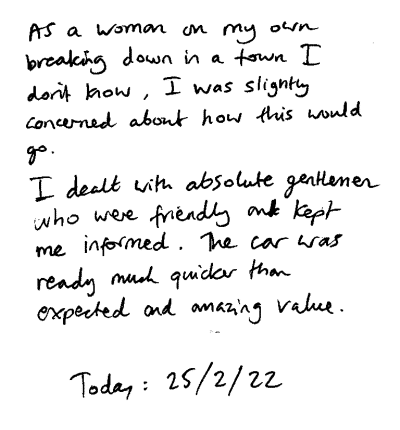 As a woman on my own
breaking down in a town I
don't know, I was slightly
concerned about how this would
go.
I dealt with absolute gentlemen
who were friendly and kept
me informed. The car was
ready much quicker than
expected and amazing value.
Today: 25/2/22